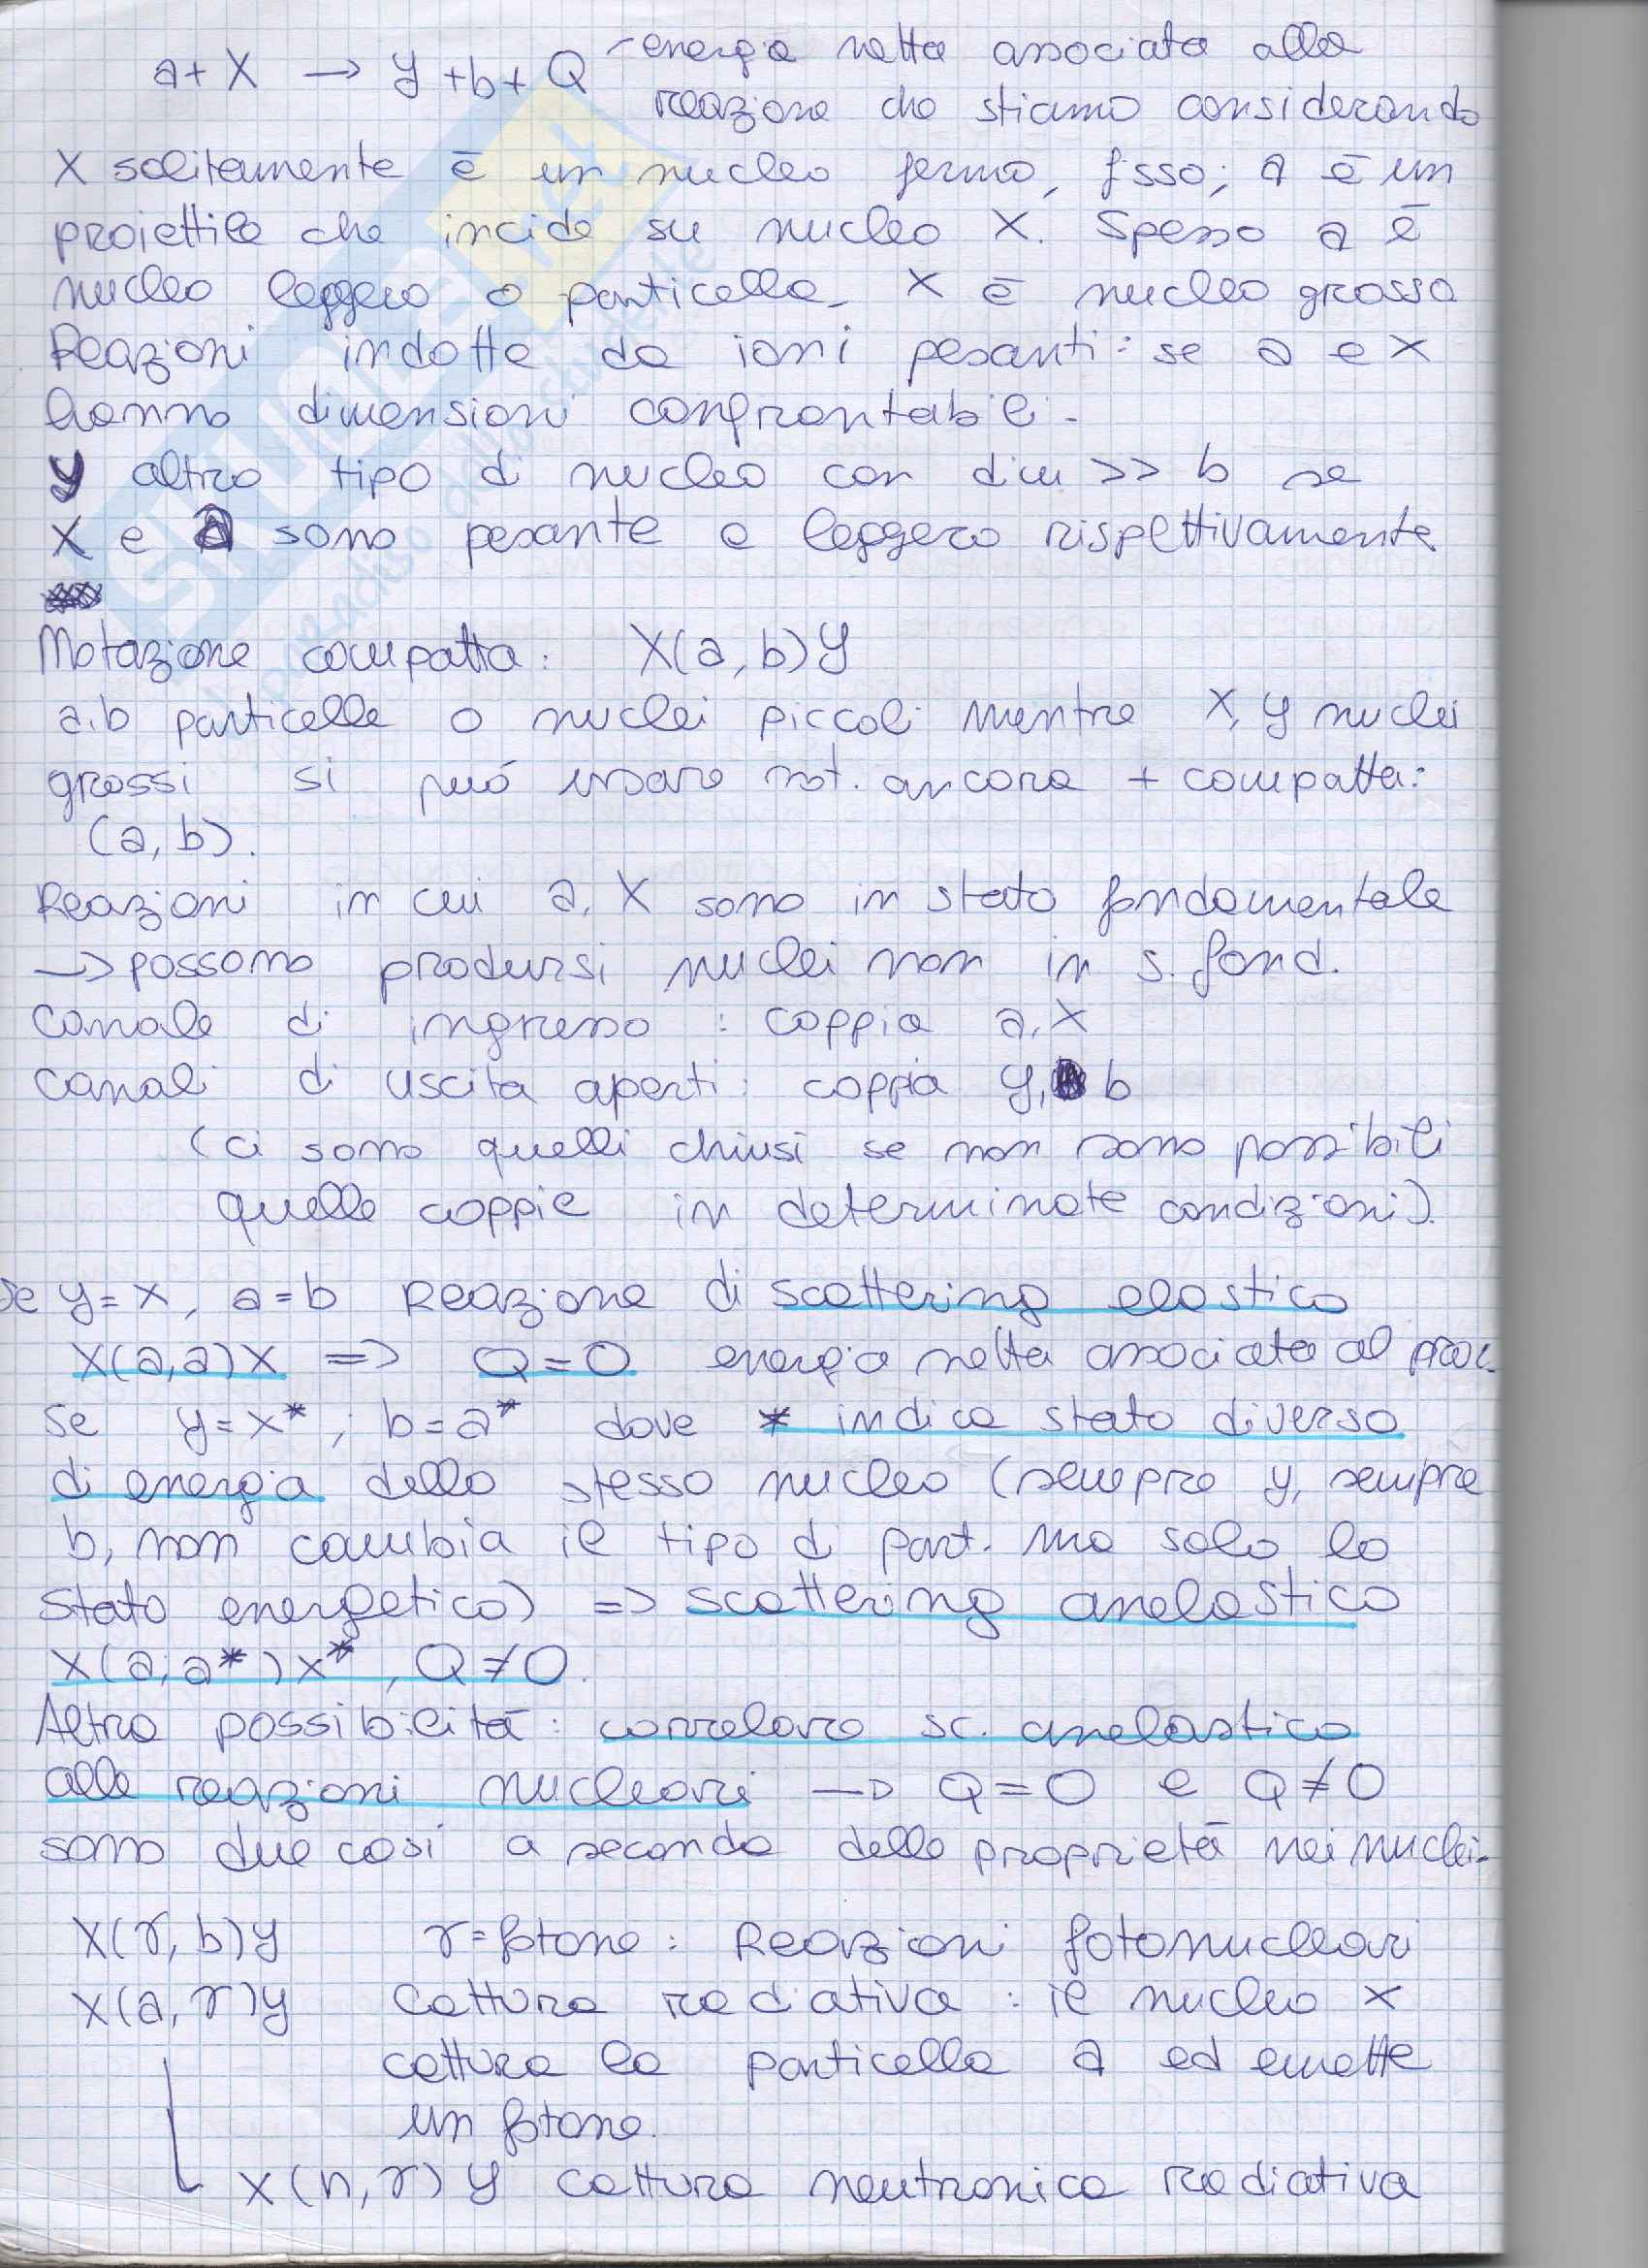 a + X → y + b + Q energia netta associata alla
reazione che stiamo considerando
X solitamente è un nucleo fermo, fisso; a è un
proiettile che incide su nucleo X. Spesso a è
nucleo leggero o particella, X è nucleo grosso
Reazioni indotte da ioni pesanti: se a e X
hanno dimensioni confrontabili.
y altro tipo di nucleo con dim >> b se
X e a sono pesante e leggero rispettivamente
Notazione compatta: X(a,b)y
a,b particelle o nuclei piccoli mentre X,y nuclei
grossi si può usare not. ancora + compatta:
(a,b).
Reazioni in cui a,X sono in stato fondamentale
→ possono prodursi nuclei non in s. fond.
Canale di ingresso : coppia a,X
Canali di uscita aperti: coppia y, b
(ci sono quelli chiusi se non sono possibili
quelle coppie in determinate condizioni).
Se y=x, a=b Reazione di scattering elastico
X(a,a)X => Q=0 energia netta associata al proc.
Se y=x*; b=a* dove * indica stato diverso
di energia dello stesso nucleo (sempre y, sempre
b, non cambia il tipo di part. ma solo lo
stato energetico) => scattering anelastico
X(a,a*)X*, Q≠0.
Altra possibilità: correlare sc. anelastico
alle reazioni nucleari → Q=0 e Q≠0
sono due casi a seconda delle proprietà nei nuclei.
X(γ,b)y γ=fotone: Reazioni fotonucleari
X(a,γ)y Cattura radiativa : il nucleo X
cattura la particella a ed emette
un fotone.
X(n,γ)y cattura neutronica radiativa
SKUOLA.net
il paradiso dello studente